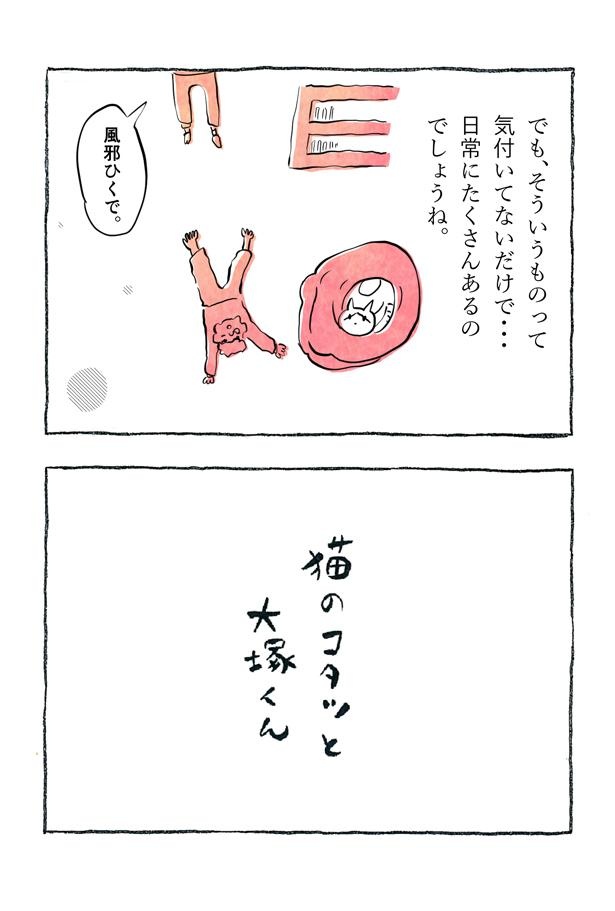 でも、そういうものって
気付いてないだけで・・・
日常にたくさんあるの
でしょうね。
風邪ひくで。
NE
KO
猫のコタツと
大塚くん